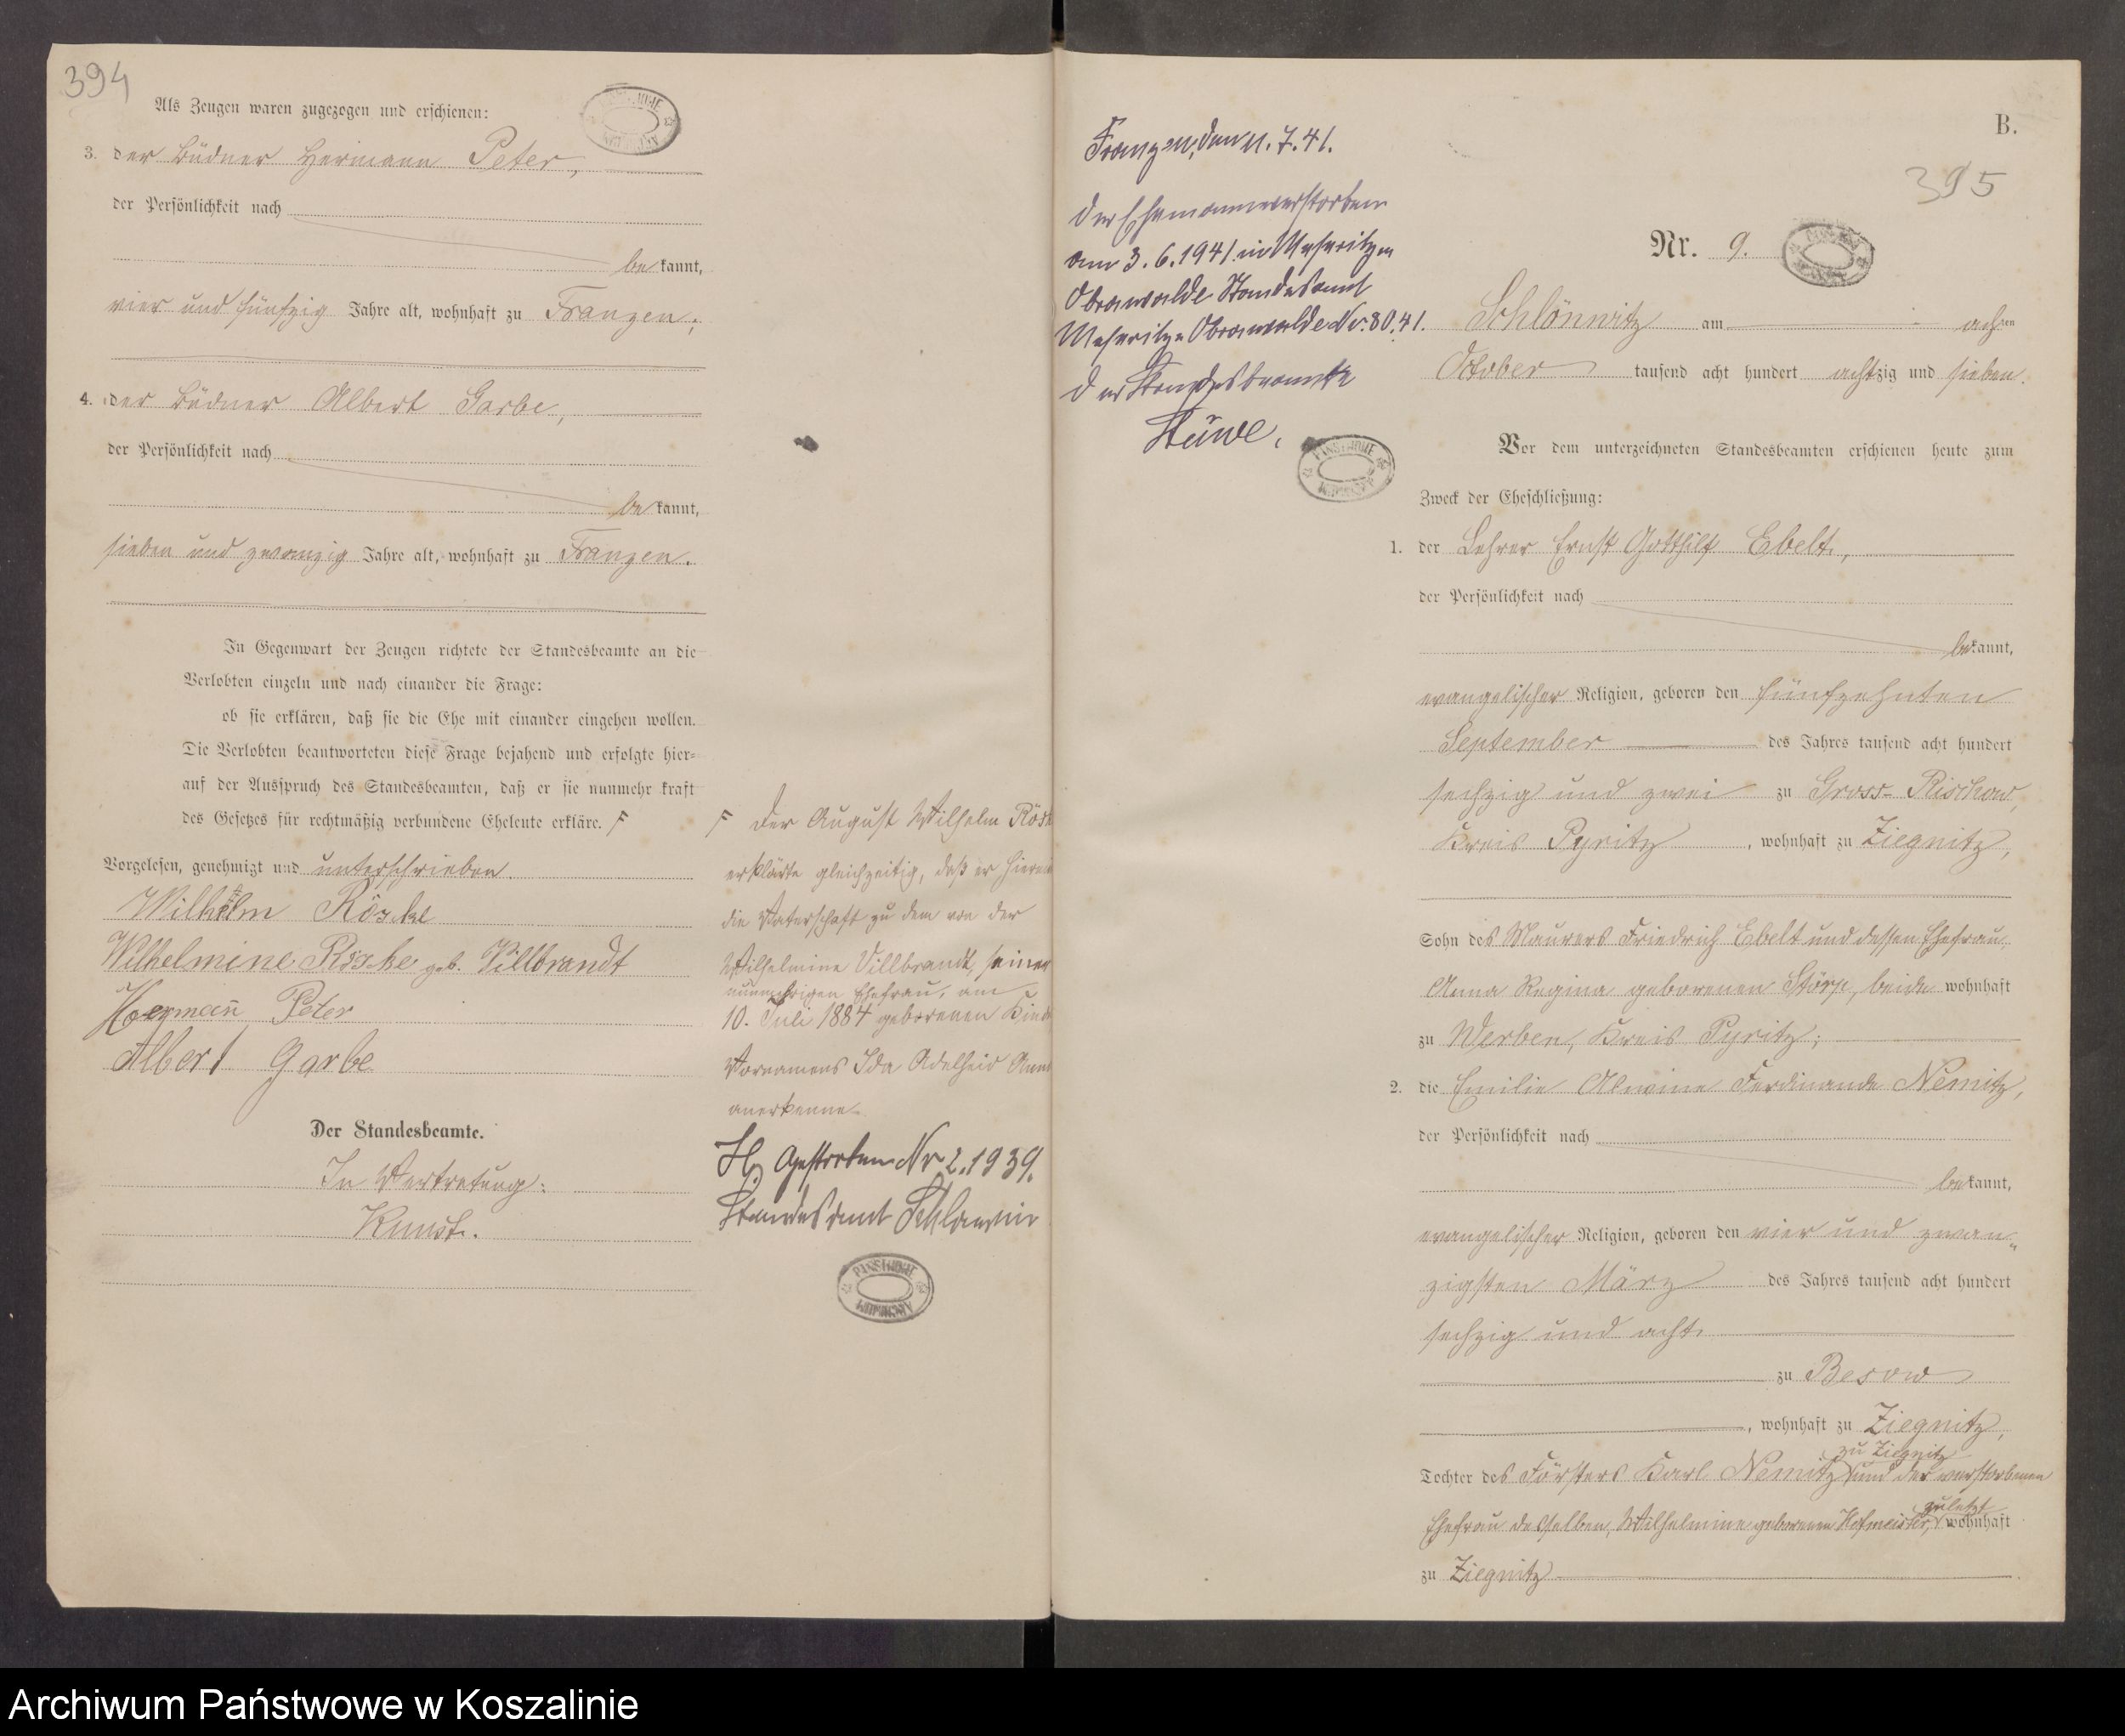 394
Als Zeugen waren zugezogen und erschienen:
3. der Büdner Hermann Peter,
der Persönlichkeit nach
bekannt,
vier und fünfzig Jahre alt, wohnhaft zu Franzen;
4. der Büdner Albert Garbe,
der Persönlichkeit nach
bekannt,
sieben und zwanzig Jahre alt, wohnhaft zu Franzen.
In Gegenwart der Zeugen richtete der Standesbeamte an die
Verlobten einzeln und nach einander die Frage:
ob sie erklären, daß sie die Ehe mit einander eingehen wollen.
Die Verlobten beantworteten diese Frage bejahend und erfolgte hier-
auf der Ausspruch des Standesbeamten, daß er sie nunmehr kraft
des Gesetzes für rechtmäßig verbundene Eheleute erkläre. F
Vorgelesen, genehmigt und unterschrieben.
Wilhelm Röske
Wilhelmine Röske geb. Villbrandt
Hermann Peter
Albert Garbe
Der Standesbeamte.
In Vertretung:
Kunst.
F Der August Wilhelm Rösk
erklärte gleichzeitig, daß er hiermi
die Vaterschaft zu dem von der
Wilhelmine Villbrandt, seiner
nunmehrigen Ehefrau, am
10. Juli 1884 geborenen Kinde
Vornamens Ida Adelheid Anna
anerkenne.
Gestorben Nr. 2. 1939.
Standesamt Schlawin
Franzen, den 11. 7. 41.
Der Ehemann verstorben
am 3. 6. 1941 in Meseritz
Obrawalde Standesamt
Meseritz-Obrawalde Nr. 80. 41.
Der Standesbeamte
Stüwe.
B.
395
Nr. 9.
Schlönwitz am achten
October tausend acht hundert achtzig und sieben.
Vor dem unterzeichneten Standesbeamten erschienen heute zum
Zweck der Eheschließung:
1. der Lehrer Ernst Gotthilf Ebelt,
der Persönlichkeit nach
bekannt,
evangelischer Religion, geboren den fünfzehnten
September des Jahres tausend acht hundert
sechzig und zwei zu Gross-Rischow,
Kreis Pyritz, wohnhaft zu Ziegnitz,
Sohn des Maurers Friedrich Ebelt und dessen Ehefrau,
Anna Regina geborenen Störp, beide wohnhaft
zu Werben, Kreis Pyritz;
2. die Emilie Alwine Ferdinande Nemitz,
der Persönlichkeit nach
bekannt,
evangelischer Religion, geboren den vier und zwan-
zigsten März des Jahres tausend acht hundert
sechzig und acht
zu Besow
, wohnhaft zu Ziegnitz,
zu Ziegnitz
Tochter des Försters Karl Nemitz und der verstorbenen
zuletzt
Ehefrau desselben, Wilhelmine geborenen Hofmeister, wohnhaft
zu Ziegnitz
Archiwum Państwowe w Koszalinie